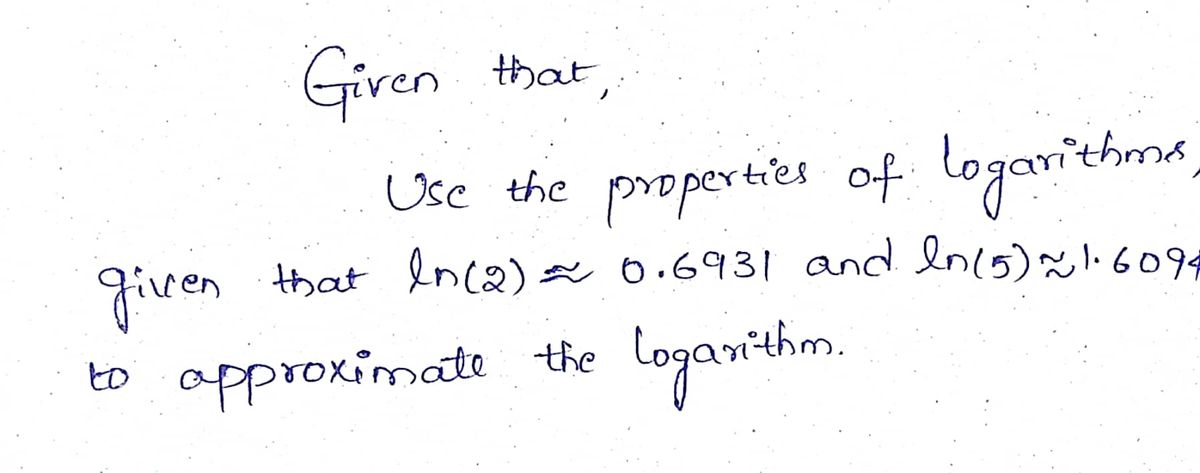 Given that,
Use the properties of logarithms,
given that ln(2) ≈ 0.6931 and ln(5) ≈ 1.6094
to approximate the logarithm.